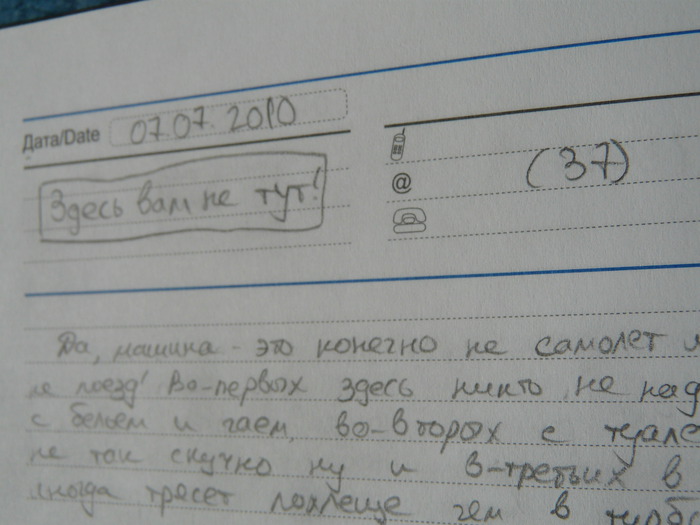 Дата/Date 07.07.2010
(37)
@
Здесь вам не тут!
Да, машина - это конечно не самолет
не поезд! Во-первых здесь никто не над
с бельем и чаем, во-вторых с туале
не так скучно ну и в-третьих в
иногда трясет похлеще чем в турб